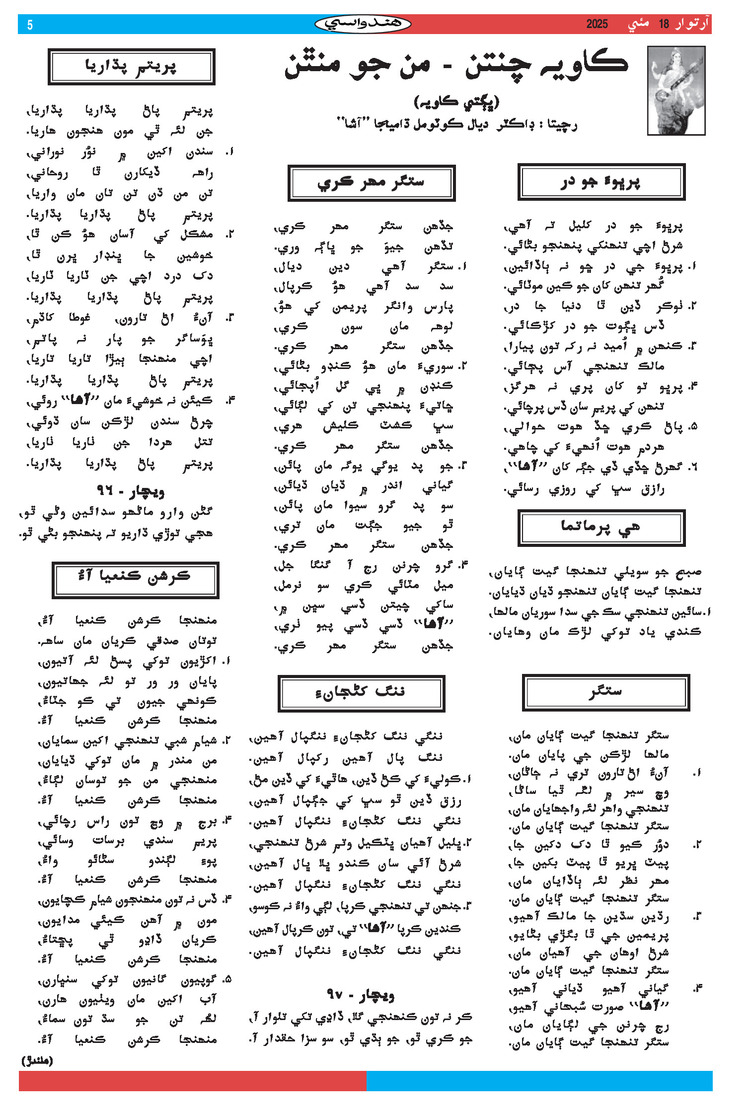 آرتوار 18 مئي 2025
هندواسي
5
ڪاويہ چنتن - من جو منٿن
(ڀڳتي ڪاويہ)
رچيتا : ڊاڪٽر ديال ڪوٽومل ڌاميجا ”آشا“
پرڀوءَ جو در
پرڀوءَ جو در کليل ٿہ آهي،
شرڻ اچي تنهنڪي پنهنجو بڻائي.
۱. پرڀوءَ جي در ڇو نہ ٻاڏائين،
گُهر تنهن کان جو ڪين موٽائي.
۲. ٺوڪر ڏين ٿا دنيا جا در،
ڏس ڀڳوت جو در کڙڪائي.
۳. ڪنهن ۾ اُميد نہ رکہ تون پيارا،
مالڪ تنهنجي آس پڄائي.
۴. پرڀو تو کان پري نہ هرگز،
تنهن کي پريم سان ڏس پرچائي.
۵. پاڻ ڪري ڇڏ هوت حوالي،
هردم هوت اُنهيءَ کي چاهي.
۶. گهرڻ ڇڏي ڏي جڳہ کان ”آشا“،
رازق سڀ کي روزي رسائي.
هي پرماتما
صبح جو سويلي تنهنجا گيت ڳايان،
تنهنجا گيت ڳايان تنهنجو ڌيان ڌيايان.
۱. سائين تنهنجي سڪ جي سدا سوريان مالها،
ڪندي ياد توکي لڙڪ مان وهايان.
ستگر
ستگر تنهنجا گيت ڳايان مان،
مالها لڙڪن جي پايان مان.
۱. آنءُ اڻ تارون تري نہ ڄاڻان،
وچ سير ۾ لڳہ ٿيا ساڻا،
تنهنجي واهر لئہ واجهايان مان.
ستگر تنهنجا گيت ڳايان مان.
۲. دوُر ڪيو ٿا دک دکين جا،
پيٽ ڀريو ٿا پيٽ بکين جا،
مهر نظر لئہ ٻاڏايان مان.
ستگر تنهنجا گيت ڳايان مان.
۳. رڌين سڌين جا مالڪ آهيو،
پريمين جي ٿا بگڙي بڻايو،
شرڻ اوهان جي آهيان مان.
ستگر تنهنجا گيت ڳايان مان.
۴. گياني آهيو ڌياني آهيو،
”آشا“ صورت سُبحاني آهيو،
رڄ چرنن جي لڳايان مان.
ستگر تنهنجا گيت ڳايان مان.
ستگر مهر ڪري
جڏهن ستگر مهر ڪري،
تڏهن جيوَ جو ڀاڳہ وري.
۱. ستگر آهي دين ديال،
سد سد آهي هوُ ڪرپال،
پارس وانگر پريمن کي هوُ،
لوهہ مان سون ڪري،
جڏهن ستگر مهر ڪري.
۲. سوريءَ مان هوُ ڪنڊو بڻائي،
ڪنڊن ۾ ڀي گل اُپڄائي،
ڇاتيءَ پنهنجي تن کي لڳائي،
سڀ ڪشٽ ڪليش هري،
جڏهن ستگر مهر ڪري.
۳. جو پد يوگي يوگہ مان پائن،
گياني اندر ۾ ڌيان ڌيائن،
سو پد گرو سيوا مان پائن،
ٿو جيو جڳت مان تري،
جڏهن ستگر مهر ڪري.
۴. گرو چرنن رڄ آ گنگا جل،
ميل مٽائي ڪري سو نرمل،
ساکي چيتن ڏسي سڀن ۾،
”آشا“ ڏسي ڏسي پيو ٺري،
جڏهن ستگر مهر ڪري.
ننگ ڪڻڇانءِ
ننگي ننگ ڪڻڇانءِ ننگپال آهين،
ننگ پال آهين رکپال آهين.
۱. ڪوليءَ کي ڪڻ ڏين، هاٿيءَ کي ڏين مڻ،
رزق ڏين ٿو سڀ کي جڳپال آهين،
ننگي ننگ ڪڻڇانءِ ننگپال آهين.
۲. ڀليل آهيان ڀٽڪيل وٺم شرڻ تنهنجي،
شرڻ آئي سان ڪندو ڀلا ڀال آهين،
ننگي ننگ ڪڻڇانءِ ننگپال آهين.
۳. جنهن تي تنهنجي ڪرپا، لڳي واءُ نہ ڪوسو،
ڪندين ڪرپا ”آشا“ تي، تون ڪرپال آهين،
ننگي ننگ ڪڻڇانءِ ننگپال آهين.
ويچار - ۹۷
ڪر نہ تون ڪنهنجي گلا، ڏاڍي تکي تلوار آ،
جو ڪري ٿو، جو ٻڌي ٿو، سو سزا حقدار آ.
پريتم پڌاريا
پريتم پاڻ پڌاريا پڌاريا،
جن لئہ ٿي مون هنجون هاريا.
۱. سندن اکين ۾ نوُر نوراني،
راهہ ڏيکارن ٿا روحاني،
تن من ڌن تن تان مان واريا،
پريتم پاڻ پڌاريا پڌاريا.
۲. مشڪل کي آسان هوُ ڪن ٿا،
خوشين جا ڀنڊار ڀرن ٿا،
دک درد اچي جن ٽاريا ٽاريا،
پريتم پاڻ پڌاريا پڌاريا.
۳. آنءُ اڻ تارون، غوطا کاڌم،
ڀوَساگر جو پار نہ پاتم،
اچي منهنجا ٻيڙا تاريا تاريا،
پريتم پاڻ پڌاريا پڌاريا.
۴. ڪيئن نہ خوشيءَ مان ”آشا“ روئي،
چرڻ سندن لڙڪن سان ڌوئي،
تتل هردا جن ٺاريا ٺاريا،
پريتم پاڻ پڌاريا پڌاريا.
ويچار - ۹۶
گڻن وارو ماڻهو سدائين وڻي ٿو،
هجي توڙي ڌاريو تہ پنهنجو بڻي ٿو.
ڪرشن ڪنعيا آءُ
منهنجا ڪرشن ڪنعيا آءُ،
توتان صدقي ڪريان مان ساهہ.
۱. اکڙيون توکي پسڻ لئہ آتيون،
پايان ور ور تو لئہ جهاتيون،
ڪونهي جيون تي ڪو ڀٽاءُ،
منهنجا ڪرشن ڪنعيا آءُ.
۲. شيام شبي تنهنجي اکين سمايان،
من مندر ۾ مان توکي ڌيايان،
منهنجي من جو توسان لڳاءُ،
منهنجا ڪرشن ڪنعيا آءُ.
۴. برج ۾ وڄ تون راس رچائي،
پريم سندي برسات وسائي،
پوءِ لڳندو سٺائو واءُ،
منهنجا ڪرشن ڪنعيا آءُ.
۴. ڏس نہ تون منهنجون شيام ڪچايون،
مون ۾ آهن ڪيئي مدايون،
ڪريان ڏاڍو ٿي پڇتاءُ،
منهنجا ڪرشن ڪنعيا آءُ.
۵. گوپيون گانيون توکي سنڀارن،
آب اکين مان ويٺيون هارن،
لڳہ تن جو سڏ تون سماءُ،
منهنجا ڪرشن ڪنعيا آءُ.
(هلندڙ)